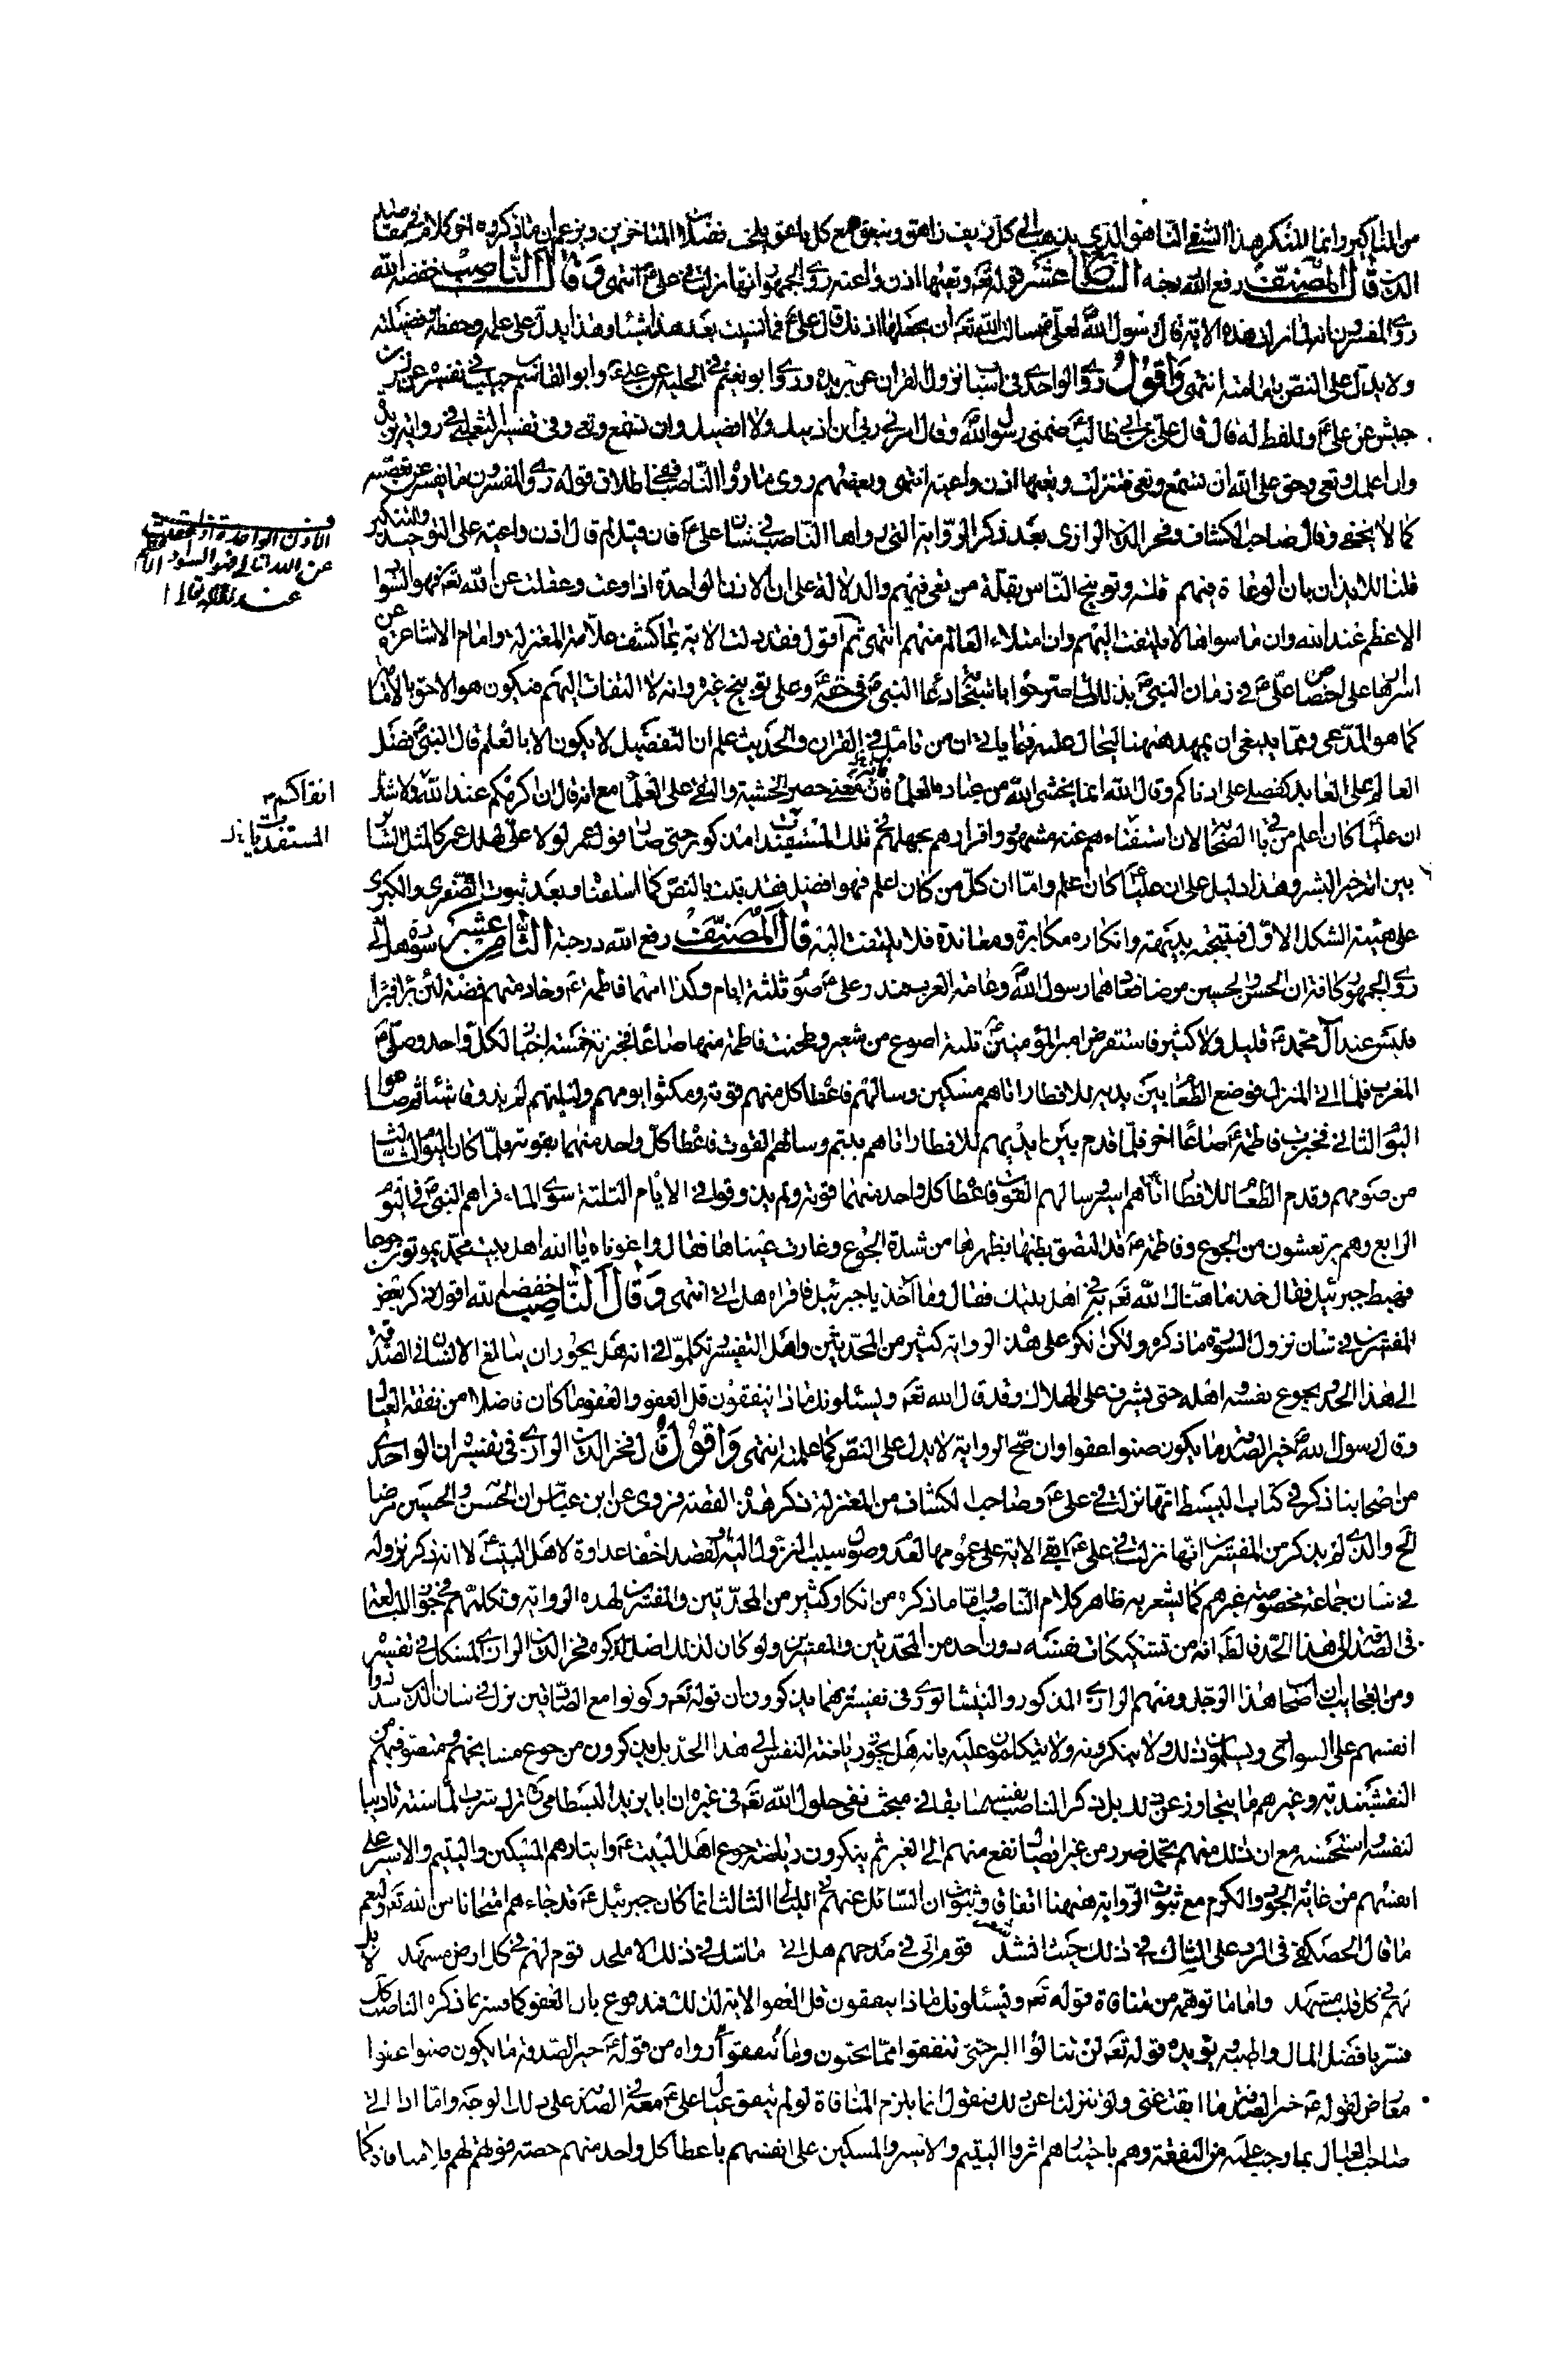 من المناكير وانما المنكر هذا الشقي الناهق الذي يذهب الى كل زيف زاهق وينعق مع كل ناعق يلحن فضلاء المتاخرين ويزعم ان ماذكروه اخر كلام في مقاصد
الدين قال المصنف رفع الله درجته السابع عشر قوله تع وتعيها اذن واعية روى الجمهور انها نزلت في علي ع انتهى وقال الناصب خفضه الله
روى المفسرون انه لما نزلت هذه الاية قال رسول الله ص لعلي ع سالت الله تع ان يجعلها اذنك قال علي ع فما نسيت بعد هذا شيئا وهذا يدل على علمه وحفظه وفضيلته
ولا يدل على النص بامامته انتهى واقول روى الواحدي في اسباب نزول القران عن بريدة وروى ابو نعيم في الحلية عن علي ع وابو القاسم حبيب في تفسيره عن زر بن
حبيش عن علي ع واللفظ له قال قال علي بن ابي طالب ع ضمني رسول الله ص وقال امرني ربي ان ادنيك ولا اقصيك وان تسمع وتعي وفي تفسير الثعلبي في رواية بريدة
وان اعلمك وتعي وحق على الله ان تسمع وتعي فنزلت وتعيها اذن واعية انتهى وبعضهم روى ما رواه الناصب ففي اطلاق قوله روى المفسرون ما يفسر عن تعصبه
كما لا يخفى وقال صاحب الكشاف وفخر الدين الرازي بعد ذكر الرواية التي رواها الناصب في شان علي ع فان قيل لم قال اذن واعية على التوحيد والتنكير
قلنا للايذان بان الوعاة فيهم قلة وتوبيخ الناس بقلة من تعي فيهم والدلالة على ان الاذن الواحدة اذا وعت وعقلت عن الله تع فهو السواد
الاعظم عند الله وان ما سواها لا يلتفت اليهم وان امتلاء العالم منهم انتهى ثم اقول فقد دلت الاية بما كشف علامة المعتزلة وامام الاشاعرة عن
اسرارها على اختصاص علي ع في زمان النبي ص بذلك لما صرحوا باستجاب دعاء النبي ص في حقه ع وعلى توبيخ غيره وانه لا التفات اليهم فيكون هو الاحق بالامامة
كما هو المدعى ومما ينبغي ان يمهد ههنا ليحال عليه فيما ياتي ان من تامل في القران والحديث علم ان التفضيل لا يكون الا بالعلم قال النبي ص فضل
العالم على العابد كفضلي على ادناكم وقال الله انما يخشى الله من عباده العلماء فان معنى حصر الخشية والتقى على العلماء مع انه قال ان اكرمكم عند الله ولا شك
ان عليا كان اعلم من باقي الصحابة لان استفتاءهم عنه مشهور واقرارهم بجهلهم في تلك المستفتيات مذكور حتى صار قول عمر لولا علي لهلك عمر كالمثل السائر
بين اندخير البشر وهذا دليل على ان عليا كان اعلم واما ان كل من كان اعلم فهو افضل فقد ثبت بالنص كما اسلفنا وبعد ثبوت الصغرى والكبرى
على هيئة الشكل الاول فنتيجته بديهية وانكاره مكابرة ومعاندة فلا يلتفت اليه قال المصنف رفع الله درجته الثامن عشر سورة هل اتى
روى الجمهور كافة ان الحسن والحسين مرضا فعادهما رسول الله ص وعامة العرب فنذر علي ع صوم ثلثة ايام وكذا امهما فاطمة ع وخادمتهم فضة لئن برئا فبرءا
فليس عند آل محمد ع قليل ولا كثير فاستقرض امير المؤمنين ع ثلثة اصوع من شعير وطحنت فاطمة منها صاعا فخبزته خمسة اخباز لكل واحد وصلى ع
المغرب فلما اتى المنزل فوضع الطعام بين يديه للافطار اتاهم مسكين وسالهم فاعطى كل منهم قوته ومكثوا يومهم وليلتهم لم يذوقوا شيئا ثم صاموا
اليوم الثاني فخبزت فاطمة ع صاعا اخر فلما قدم بين ايديهم للافطار اتاهم يتيم وسالهم القوت فاعطى كل واحد منهما بقوته فلما كان اليوم الثالث
من صومهم وقدم الطعام للافطار اتاهم اسير وسالهم القوت فاعطى كل واحد منهما قوته ولم يذوقوا في الايام الثلثة سوى الماء فراهم النبي ص في اليوم
الرابع وهم يرتعشون من الجوع وفاطمة ع قد التصق بطنها بظهرها من شدة الجوع وغارت عيناها فقال واغوثاه يا الله اهل بيت محمد يموتون جوعا
فهبط جبرئيل فقال خذ ما هناك الله تع به في اهل بيتك فقال وما آخذ يا جبرئيل فاقراه هل اتى انتهى وقال الناصب خفضه الله اقول ذكر بعض
المفسرين في شان نزول السورة ما ذكره ولكن انكر على هذه الرواية كثير من المحدثين واهل التفسير وتكلموا في انه هل يجوز ان يبالغ الانسان في الصدقة
الى هذا الحد ويجوع نفسه اهله حتى يشرف على الهلاك وقد قال الله تع ويسئلونك ماذا ينفقون قل العفو والعفو ما كان فاضلا من نفقة العيال
وقال رسول الله ص خير الصدقة ما يكون صنوا عفوا وان صح الرواية لا يدل على النص كما علمته انتهى واقول قال فخر الدين الرازي في تفسيره ان الواحدي
من اصحابنا ذكر في كتاب البسيط انها نزلت في علي ع وصاحب الكشاف من المعتزلة ذكر هذه القصة فروى عن ابن عباس ان الحسن والحسين مرضا
الخ والذي لم يذكر من المفسرين انها نزلت في علي ع ابقى الاية على عمومها لعدم وصول سبب النزول اليه او لقصد اخفاء عداوة لاهل البيت ع لا انه ذكر نزوله
في شان جماعة مخصوصة غيرهم كما يشعر به ظاهر كلام الناصب واما ما ذكره من انكار كثير من المحدثين والمفسرين لهذه الرواية وتكلمهم في جواز المبالغة
في الصدقة الى هذا الحد فالظ انه من تشكيكات نفسه دون احد من المحدثين والمفسرين ولو كان لذلك اصل لذكره فخر الدين الرازي المشكك في تفسيره
ومن العجايب ان اصحاب هذا الرجل ومنهم الرازي المذكور والنيشابوري في تفسيريهما يذكرون ان قوله تع وكونوا مع الصادقين نزل في شان الذين شدوا
انفسهم على السواري ويسلمون ذلك ولا ينكرونه ولا يتكلمون عليه بانه هل يجوز رياضة النفس الى هذا الحد بل يذكرون من جوع مشايخهم ومتصوفيهم من
النقشبندية وغيرهم ما يتجاوز عن ذلك بل ذكر الناصب نفسه سابقا في مبحث نفي حلول الله تع في غيره ان بايزيد البسطامي ترك شرب الماء سنة تاديبا
لنفسه واستحسنه مع ان ذلك منهم تحمل ضرر من غير ايصال نفع منهم الى الغير ثم ينكرون رياضة جوع اهل البيت ع وايثارهم المسكين واليتيم والاسير على
انفسهم من غاية الجود والكرم مع ثبوت الرواية ههنا اتفاقا وثبوت ان السائل عنهم في الليالي الثالث انما كان جبرئيل ع قد جاءهم امتحانا من الله تع ولنعم
ما قال الحصكفي في الرد على الشاك في ذلك حيث انشد شعر قوم اتى في مدحهم هل اتى ما شك في ذلك الا ملحد قوم لهم في كل ارض مشهد لا بل
لهم في كل قلب مشهد واما ما توهمه من منافاة قوله تع ويسئلونك ماذا ينفقون قل العفو الاية لذلك فمدفوع بان العفو كما فسر بما ذكره الناصب كك
فسر بافضل المال واطيبه ويؤيده قوله تع لن تنالوا البر حتى تنفقوا مما تحبون وما رواه من قوله ع خير الصدقة ما يكون صنوا عفوا
معارض لقوله ع خير الصدقة ما ابقت غنى ولو تنزلنا عن ذلك فنقول انما يلزم المنافاة لو لم ينفق عيال علي ع معه في الصدقة على ذلك الوجه واما اذا اتى
صاحب العيال بما وجب عليه من النفقة وهم باختيارهم اثروا اليتيم والاسير والمسكين على انفسهم باعطاء كل واحد منهم حصته فهو لهم فلا منافاة كما
الاذن الواحدة اذا وعت وعقلت
عن الله تعالى فهو السواد الاعظم
عند الله تعالى
اتقاكم